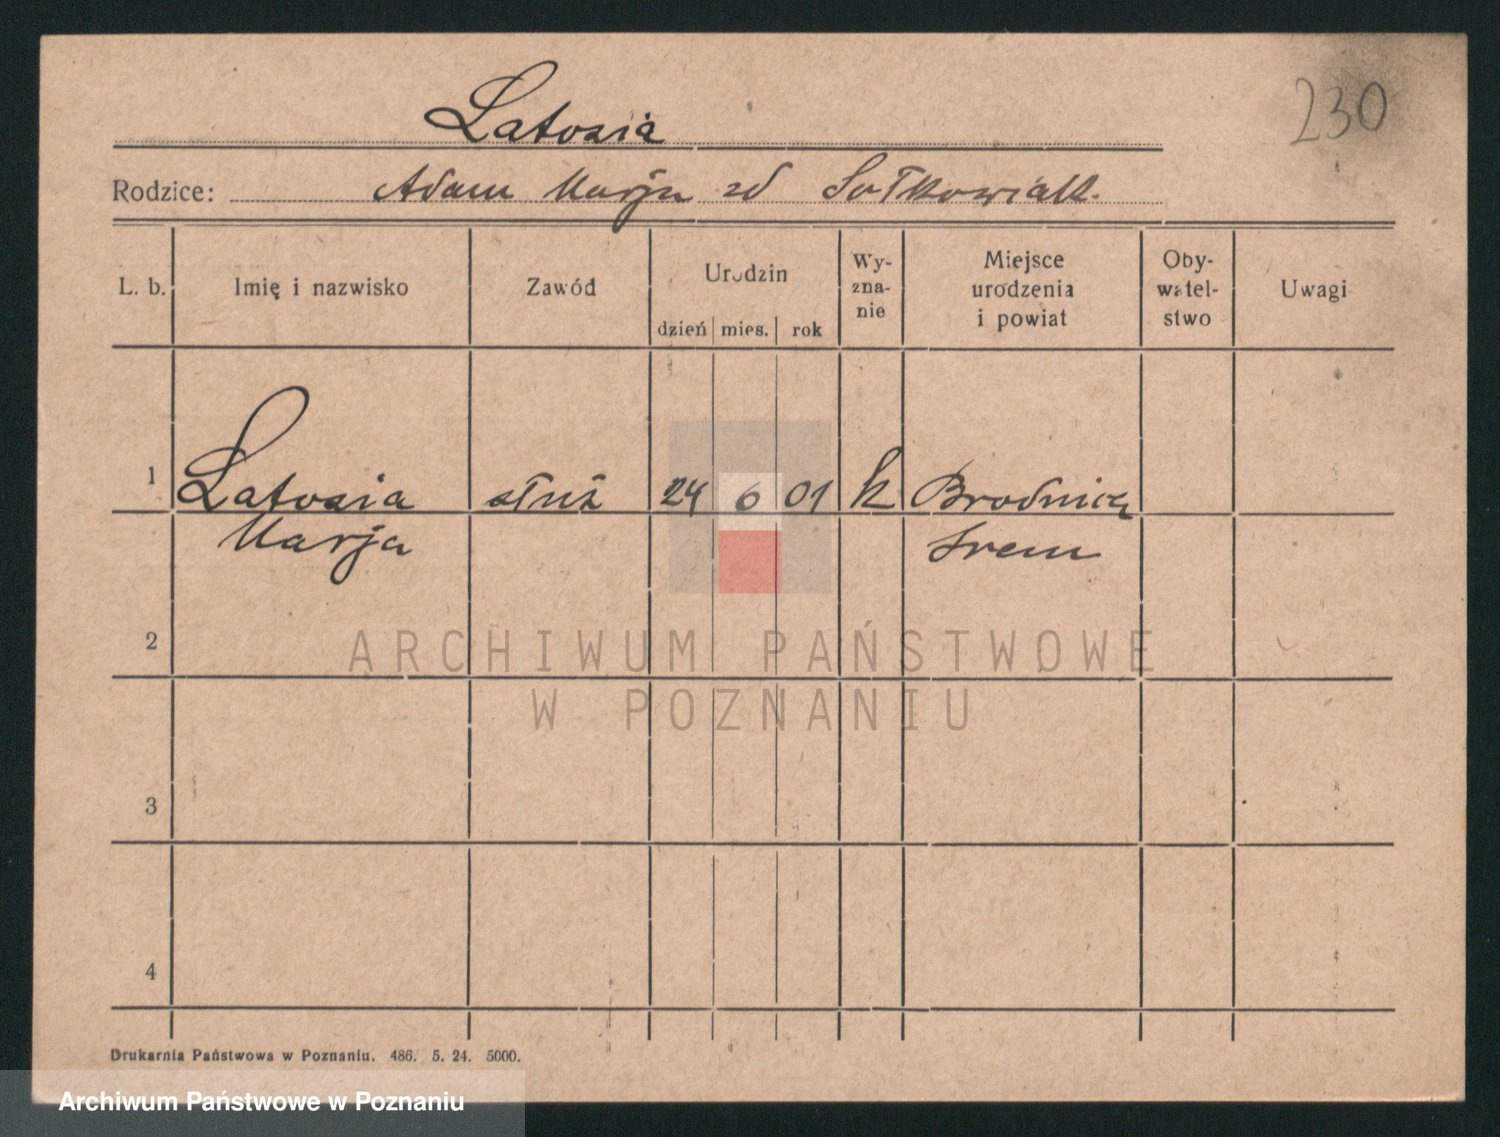 230
Latosia
Rodzice: Adam Marja zd Sołkowiak.
L. b. Imię i nazwisko Zawód Urodzin dzień mies. rok Wy-zna-nie Miejsce urodzenia i powiat Oby-watel-stwo Uwagi
1 Latosia służ 24 6 01 k Brodnica
Marja Srem
2
ARCHIWUM PAŃSTWOWE
W POZNANIU
3
4
Drukarnia Państwowa w Poznaniu. 486. 5. 24. 5000.
Archiwum Państwowe w Poznaniu